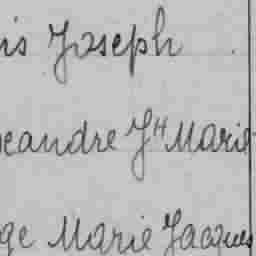 is Joseph
eandre Jh Marie
ge Marie Jacques